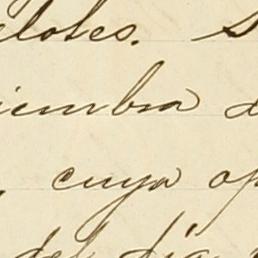 elotes. S
iembra d
, cuya op
del día